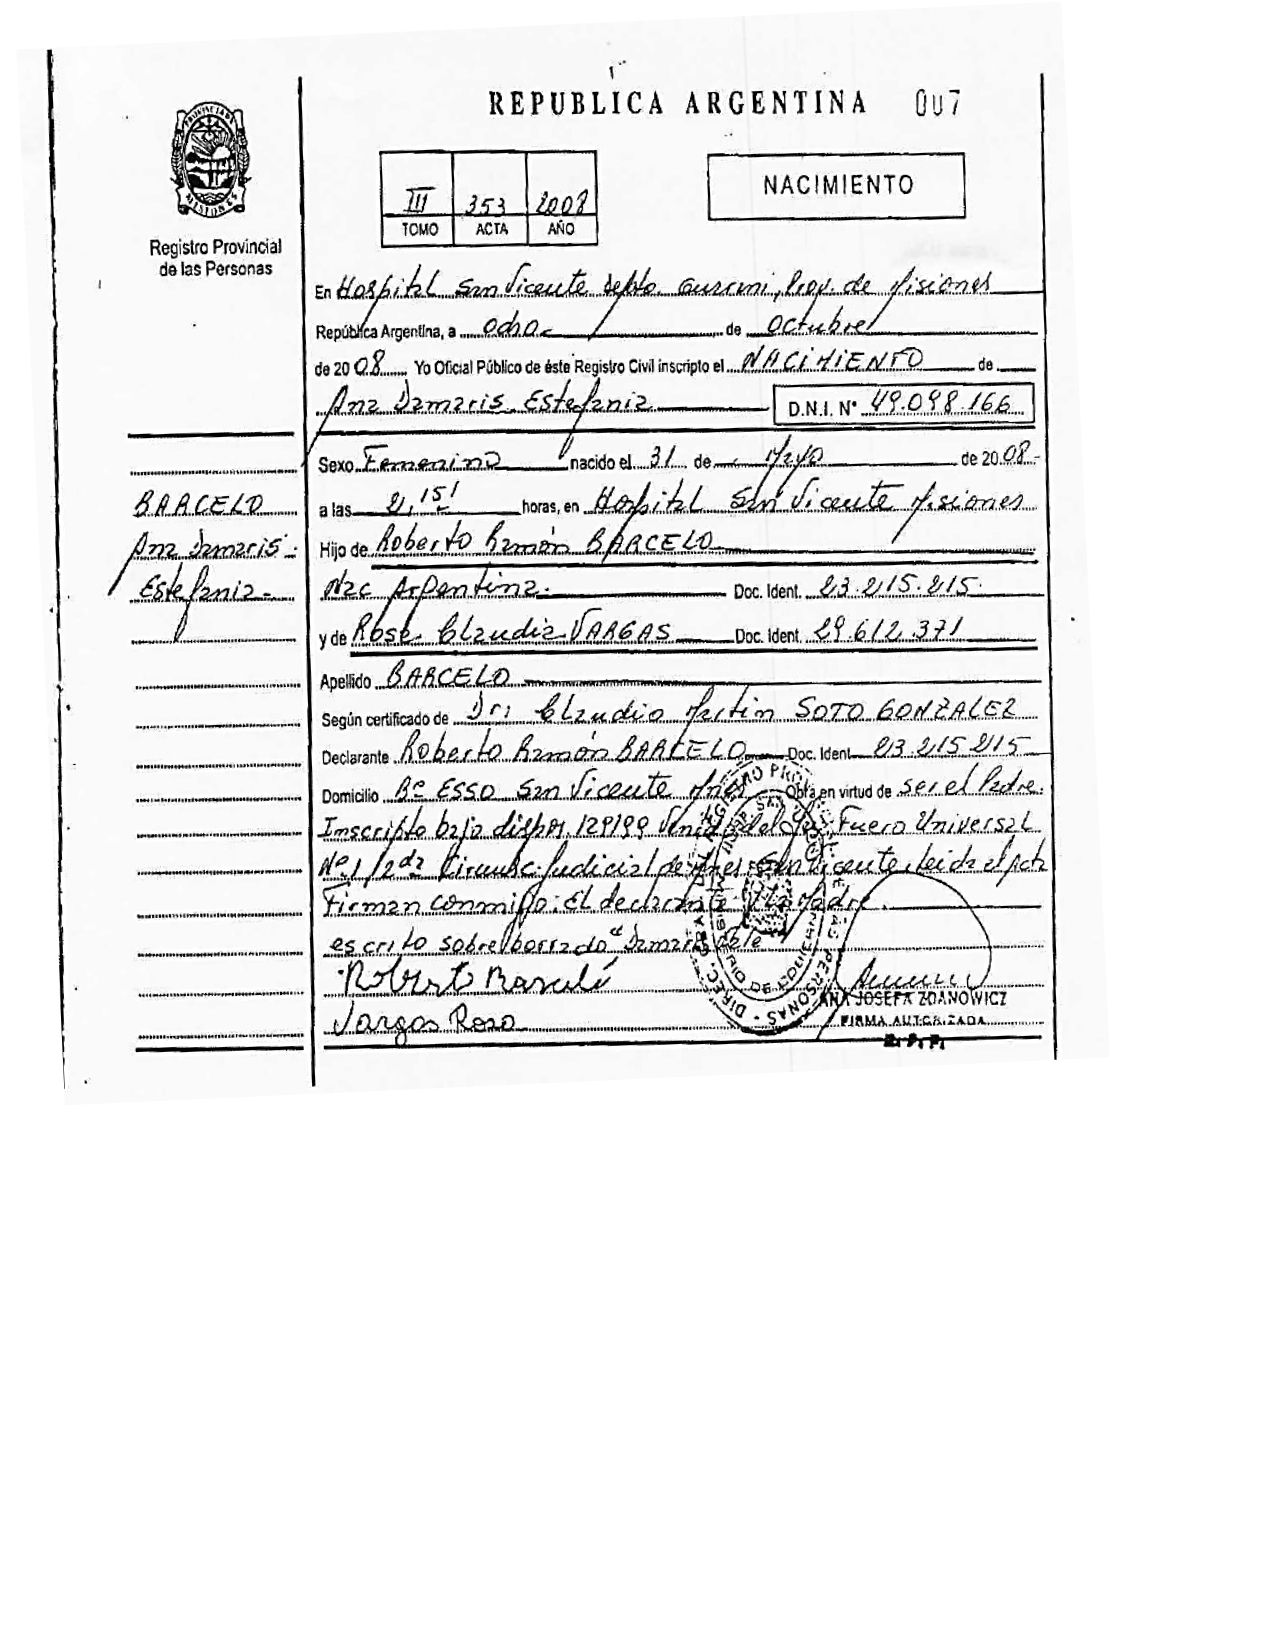 REPUBLICA ARGENTINA 007
PROVINCIA DE
MISIONES
Registro Provincial
de las Personas
III 353 2008
TOMO ACTA AÑO
NACIMIENTO
En Hospital San Vicente Depto. Guarani, Prov. de Misiones
República Argentina, a ocho de Octubre
de 2008 Yo Oficial Público de éste Registro Civil inscripto el NACIMIENTO de
Ana Damaris Estefania D.N.I. N° 49.098.166
Sexo Femenino nacido el 31 de Mayo de 2008
a las 2,15 horas, en Hospital San Vicente Misiones
Hijo de Roberto Ramón BARCELO
Nac Argentina Doc. Ident. 23.215.215
y de Rosa Claudia VARGAS Doc. Ident. 29.612.371
Apellido BARCELO
Según certificado de Dr. Claudio Martin SOTO GONZALEZ
Declarante Roberto Ramón BARCELO Doc. Ident 23.215.215
Domicilio Bº ESSO San Vicente Mnes Obra en virtud de ser el Padre.
Inscripto bajo 129/99 Fuero Universal
Nº 1/2da Circunsc. Judicial de Mnes. San Vicente, leida el Acta
Firman conmigo: El declarante y la Madre.
escrito sobre borrado "Damaris" Vale
Roberto Barceló
Vargas Rosa
ANA JOSEFA ZDANOWICZ
FIRMA AUTORIZADA
R. P. P.
BARCELO
Ana Damaris
Estefania